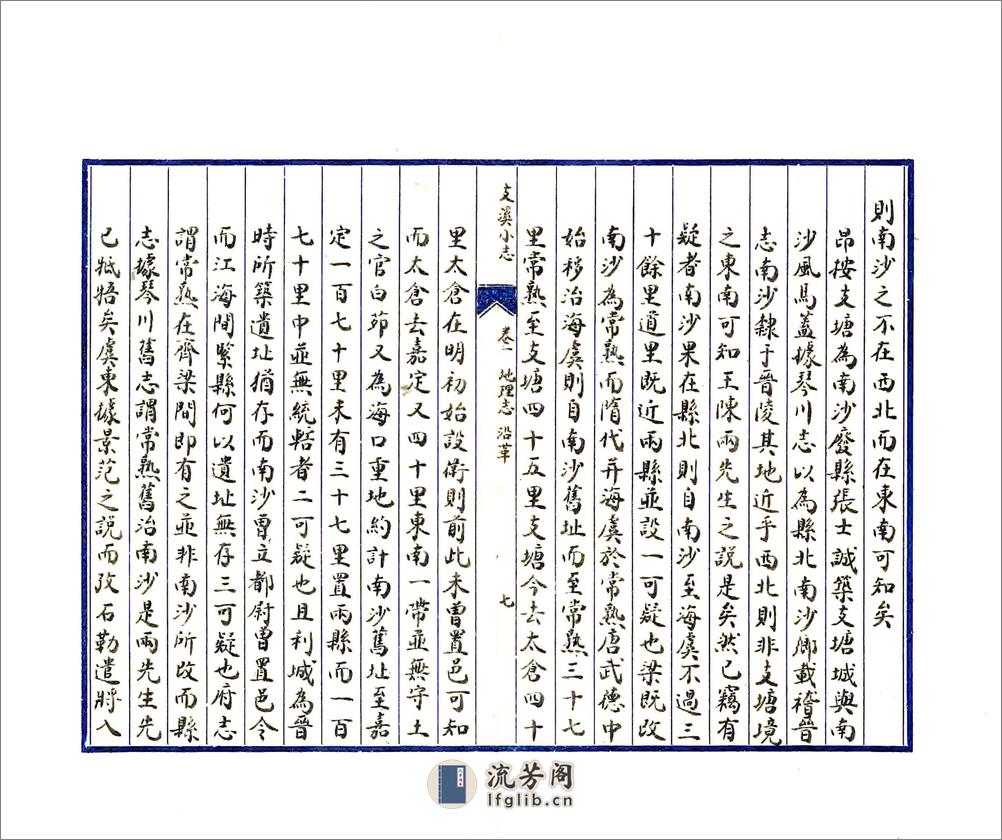 則南沙之不在西北而在東南可知矣
昂按支塘為南沙廢縣張士誠築支塘城與南
沙風馬蓋據琴川志以為縣北南沙鄉載稽晉
志南沙隸于晉陵其地近乎西北則非支塘境
之東南可知王陳兩先生之說是矣然已竊有
疑者南沙果在縣北則自南沙至海虞不過三
十餘里道里既近兩縣並設一可疑也梁既改
南沙為常熟而隋代并海虞於常熟唐武德中
始移治海虞則自南沙舊址而至常熟三十七
里常熟至支塘四十五里支塘今去太倉四十
支溪小志 卷一 地理志 沿革 七
里太倉在明初始設衛則前此未曾置邑可知
而太倉去嘉定又四十里東南一帶並無守土
之官白茆又為海口重地約計南沙舊址至嘉
定一百七十里未有三十七里置兩縣而一百
七十里中並無統轄者二可疑也且利城為晉
時所築遺址猶存而南沙曾立都尉曾置邑令
而江海間緊縣何以遺址無存三可疑也府志
謂常熟在齊梁間即有之並非南沙所改而縣
志據琴川舊志謂常熟舊治南沙是兩先生先
已牴牾矣虞東據景范之說而攷石勒遣將入
流芳阁
lfglib.cn